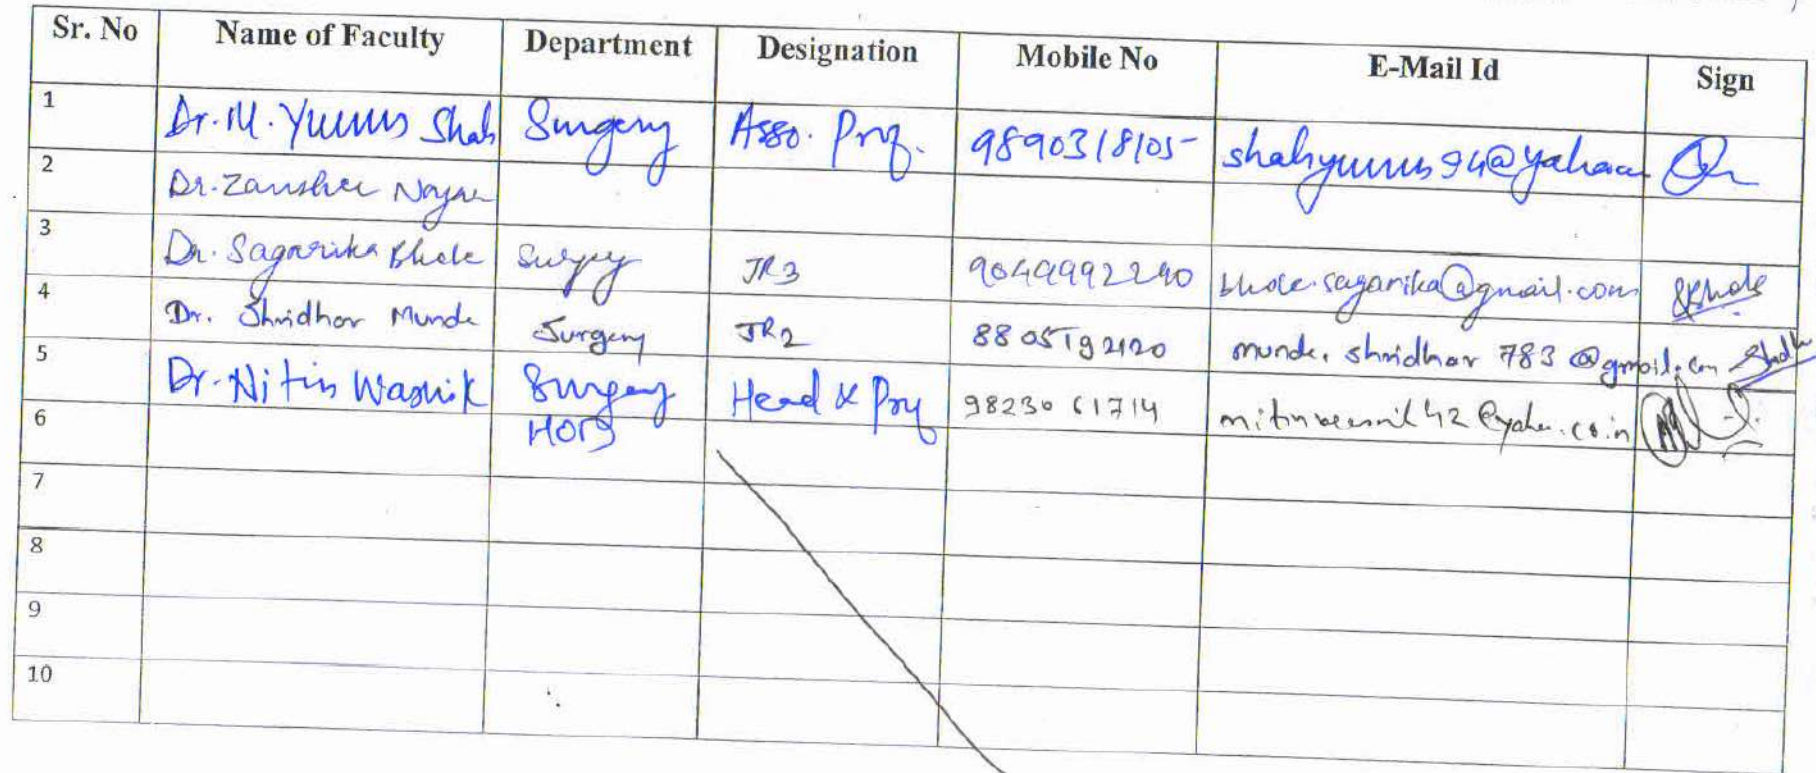 Sr. No Name of Faculty Department Designation Mobile No E-Mail Id Sign
1 Dr. M. Yunus Shah Surgery Asso. Prof.9890318105 shahyunus94@yahoo
2 Dr. Zanshee Nayar
3 Dr. Sagarika Bhole Surgery JR3 9049992290 bhole.sagarika@gmail.com
4 Dr. Shridhar Munde Surgery JR2 8805192120 munde.shridhar783@gmail.com
5 Dr. Nitin Wasnik Surgery Head & Prof 9823061714
6 HOD
7
8
9
10